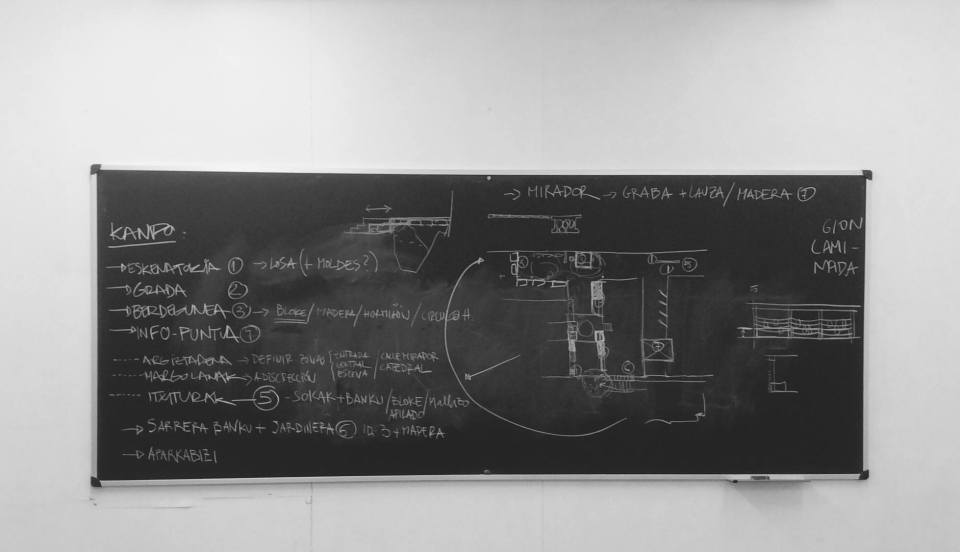 → MIRADOR → GRABA + LAUZA/MADERA 7
KANPO
→ ESKENATOKIA 1 → LOSA (+ MOLDES?)
→ GRADA 2
→ BERDEGUNEA 3 → BLOKE/MADERA/HORMIGÓN/CIRCULO H.
→ INFO-PUNTUA 7
ARGIZTAPENA → DEFINIR ZONAS ENTRADA CENTRAL ESCENA / CALLE MIRADOR CATEDRAL
MARGOLANAK → A DISCRECIÓN
ITXITURAK 5 - SOKAK + BANKU/BLOKE APILADO
→ SARRERA BANKU + JARDINERA 6 ID. 3 + MADERA
→ APARKABIZI
GION
LAMI-
NADA